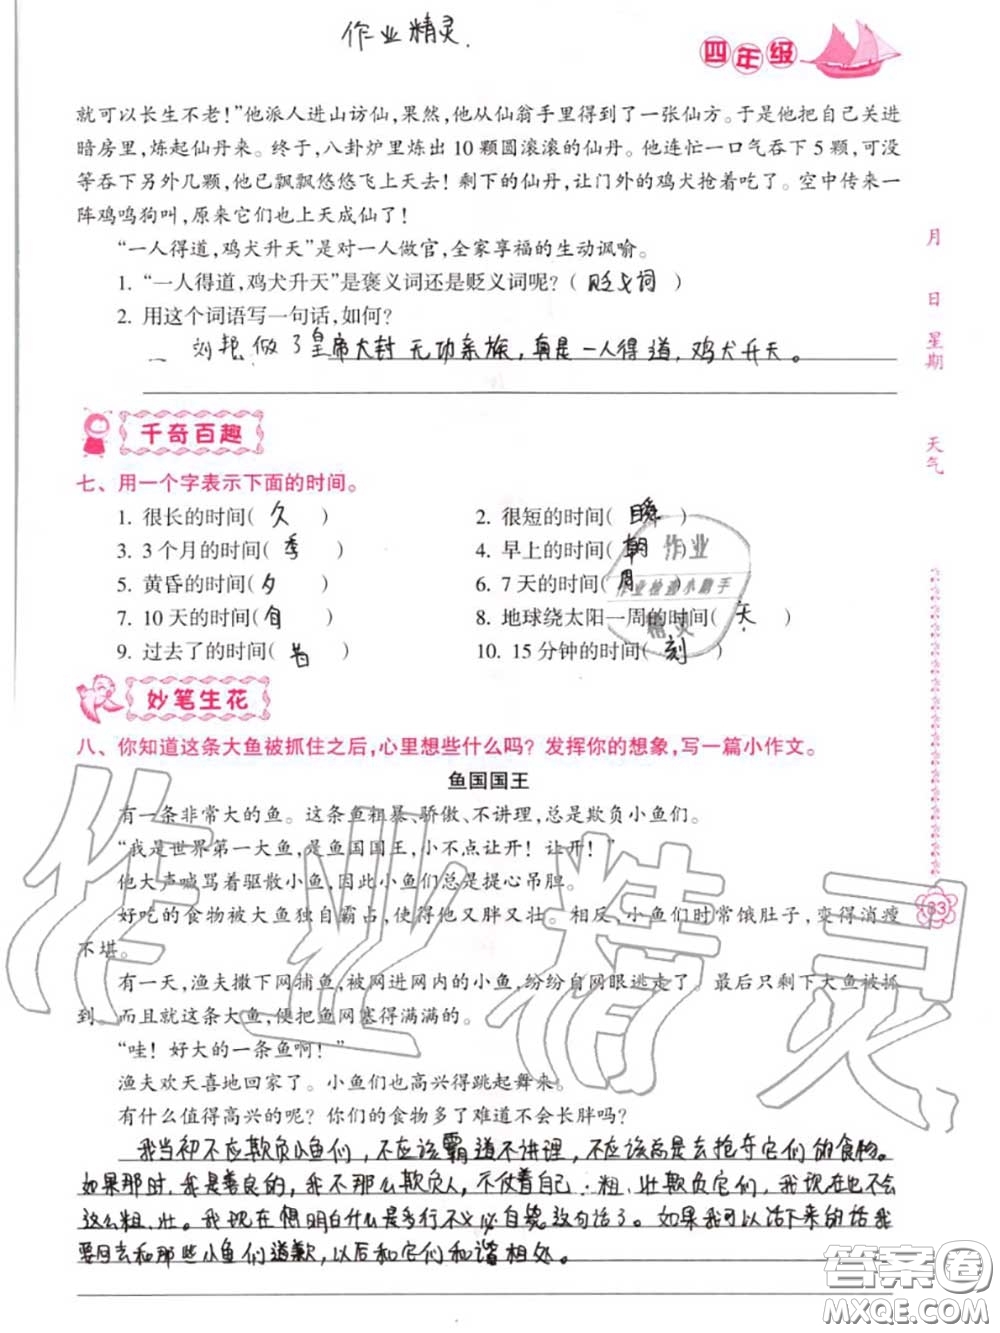 作业精灵.
四年级
就可以长生不老！”他派人进山访仙，果然，他从仙翁手里得到了一张仙方。于是他把自己关进
暗房里，炼起仙丹来。终于，八卦炉里炼出 10 颗圆滚滚的仙丹。他连忙一口气吞下 5 颗，可没
等吞下另外几颗，他已飘飘悠悠飞上天去！剩下的仙丹，让门外的鸡犬抢着吃了。空中传来一
阵鸡鸣狗叫，原来它们也上天成仙了！
“一人得道，鸡犬升天”是对一人做官，全家享福的生动讽喻。
1. “一人得道，鸡犬升天”是褒义词还是贬义词呢？（ 贬义词 ）
2. 用这个词语写一句话，如何？
刘邦做了皇帝大封无功亲族，真是一人得道，鸡犬升天。
月
日
星期
天气
千奇百趣
七、用一个字表示下面的时间。
1. 很长的时间( 久 )
2. 很短的时间( 瞬 )
3. 3 个月的时间( 季 )
4. 早上的时间( 朝 )
5. 黄昏的时间( 夕 )
6. 7 天的时间( 周 )
7. 10 天的时间( 旬 )
8. 地球绕太阳一周的时间( 天 )
9. 过去了的时间( 昔 )
10. 15 分钟的时间( 刻 )
作业
作业检查小助手
精灵
妙笔生花
八、你知道这条大鱼被抓住之后，心里想些什么吗？发挥你的想象，写一篇小作文。
鱼国国王
有一条非常大的鱼。这条鱼粗暴、骄傲、不讲理，总是欺负小鱼们。
“我是世界第一大鱼，是鱼国国王，小不点让开！让开！”
他大声喊骂着驱散小鱼，因此小鱼们总是提心吊胆。
好吃的食物被大鱼独自霸占，使得他又胖又壮。相反，小鱼们时常饿肚子，变得消瘦
不堪。
有一天，渔夫撒下网捕鱼，被网进网内的小鱼，纷纷自网眼逃走了。最后只剩下大鱼被抓
到，而且就这条大鱼，便把鱼网塞得满满的。
“哇！好大的一条鱼啊！”
渔夫欢天喜地回家了。小鱼们也高兴得跳起舞来。
有什么值得高兴的呢？你们的食物多了难道不会长胖吗？
我当初不应欺负小鱼们，不应该霸道不讲理，不应该总是去抢夺它们的食物。
如果那时，我是善良的，我不那么欺负人，不仗着自己：粗、壮欺负它们，我现在也不会
这么粗、壮。我现在 明白什么是多行不义必自毙这句话了。如果我可以活下来的话我
要回去和那些小鱼们道歉，以后和它们和谐相处。
63
作业精灵
答案圈
MXQE.COM